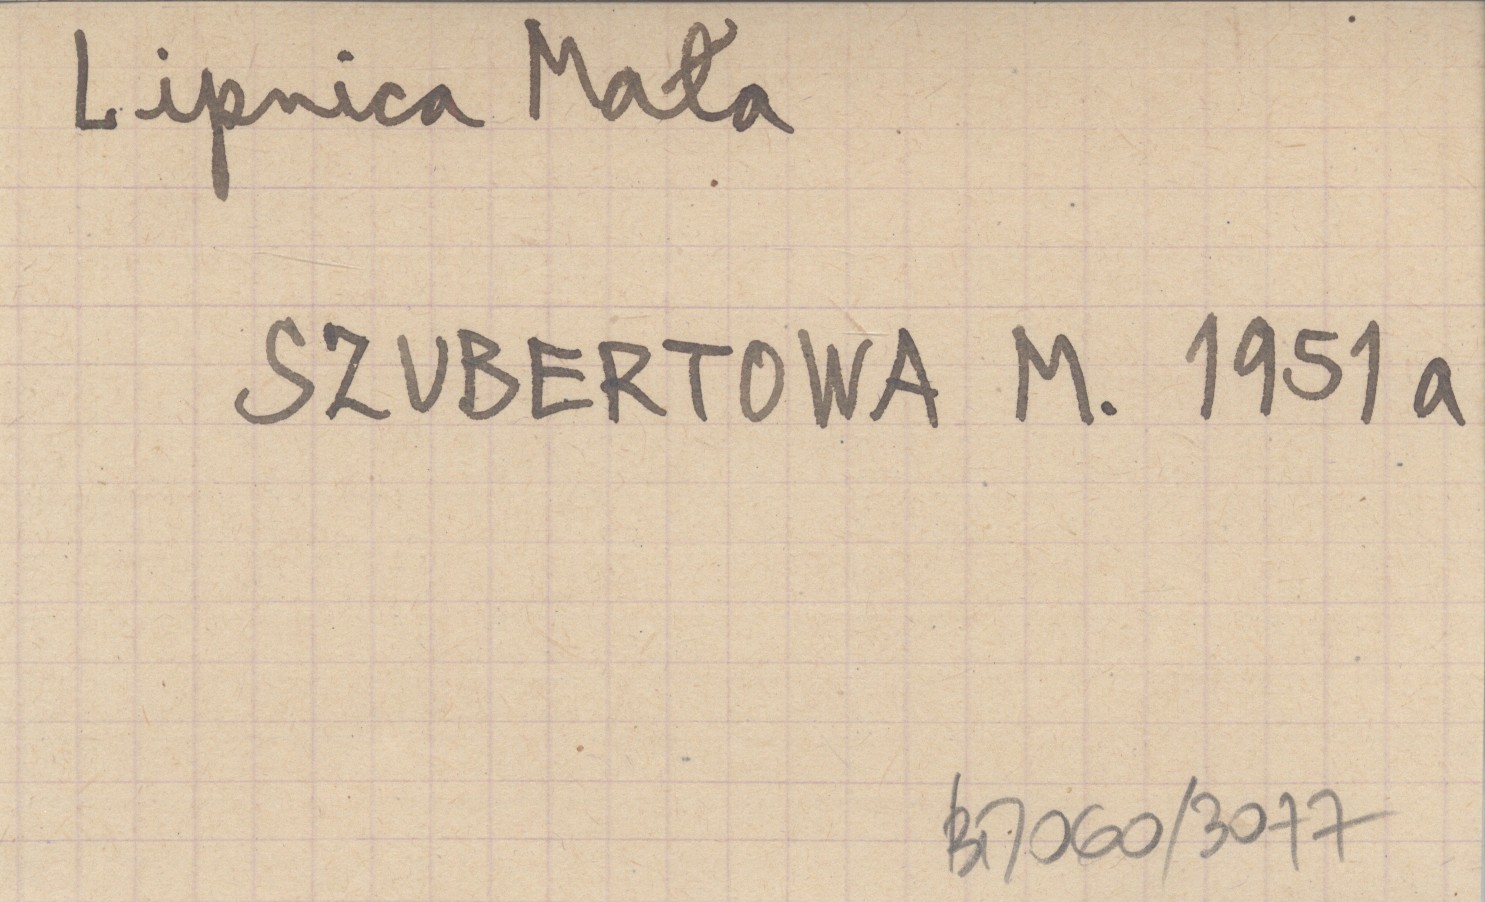 Lipnica Mała
SZUBERTOWA M. 1951a
/3077